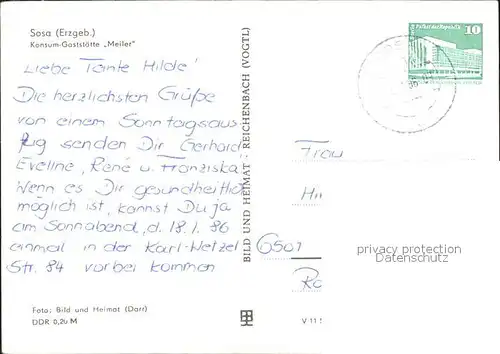 Sosa (Erzgeb.)
Konsum-Gaststätte „Meiler"
Liebe Tante Hilde!
Die herzlichsten Grüße
von einem Sonntagsaus
flug senden Dir Gerhard
Eveline, René u. Franziska
Wenn es Dir gesundheitlich
möglich ist, kannst Du ja
am Sonnabend, d. 18.1.86
einmal in der Karl-Wetzel
Str. 84 vorbei kommen
Foto: Bild und Heimat (Darr)
DDR 0,20 M
BILD UND HEIMAT REICHENBACH (VOGTL)
V 11
Palast der Republik
10
Frau
6501
privacy protection
Datenschutz